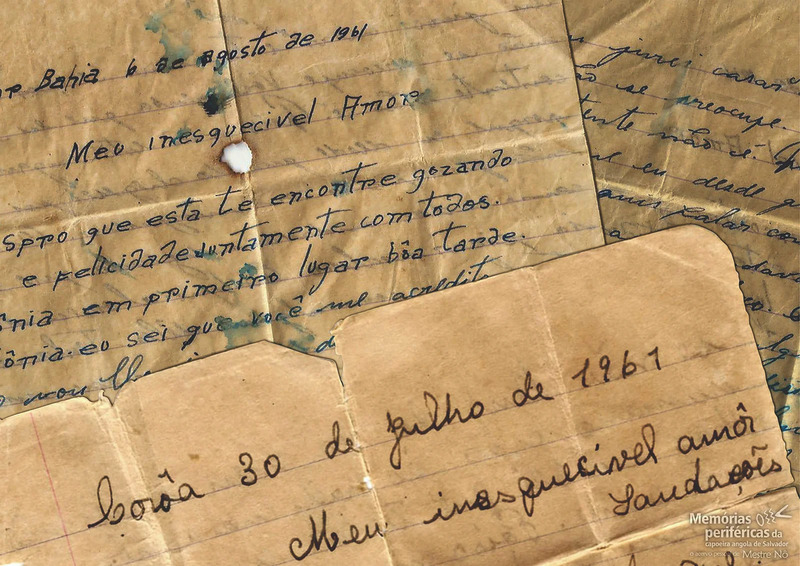 Bahia 6 de agosto de 1961
Meu inesquecivel Amor
spro que esta te encontre gozando
e felicidade juntamente com todos.
ônia em primeiro lugar bôa tarde.
ônia. eu sei que você me acredit
vou lhe
jurei casar
se preocupe.
não é.
eu desde
falar com
Corôa 30 de julho de 1961
Meu inesquecivel amôr
Saudações
Memórias
periféricas da
capoeira angola de Salvador
Mestre Nô